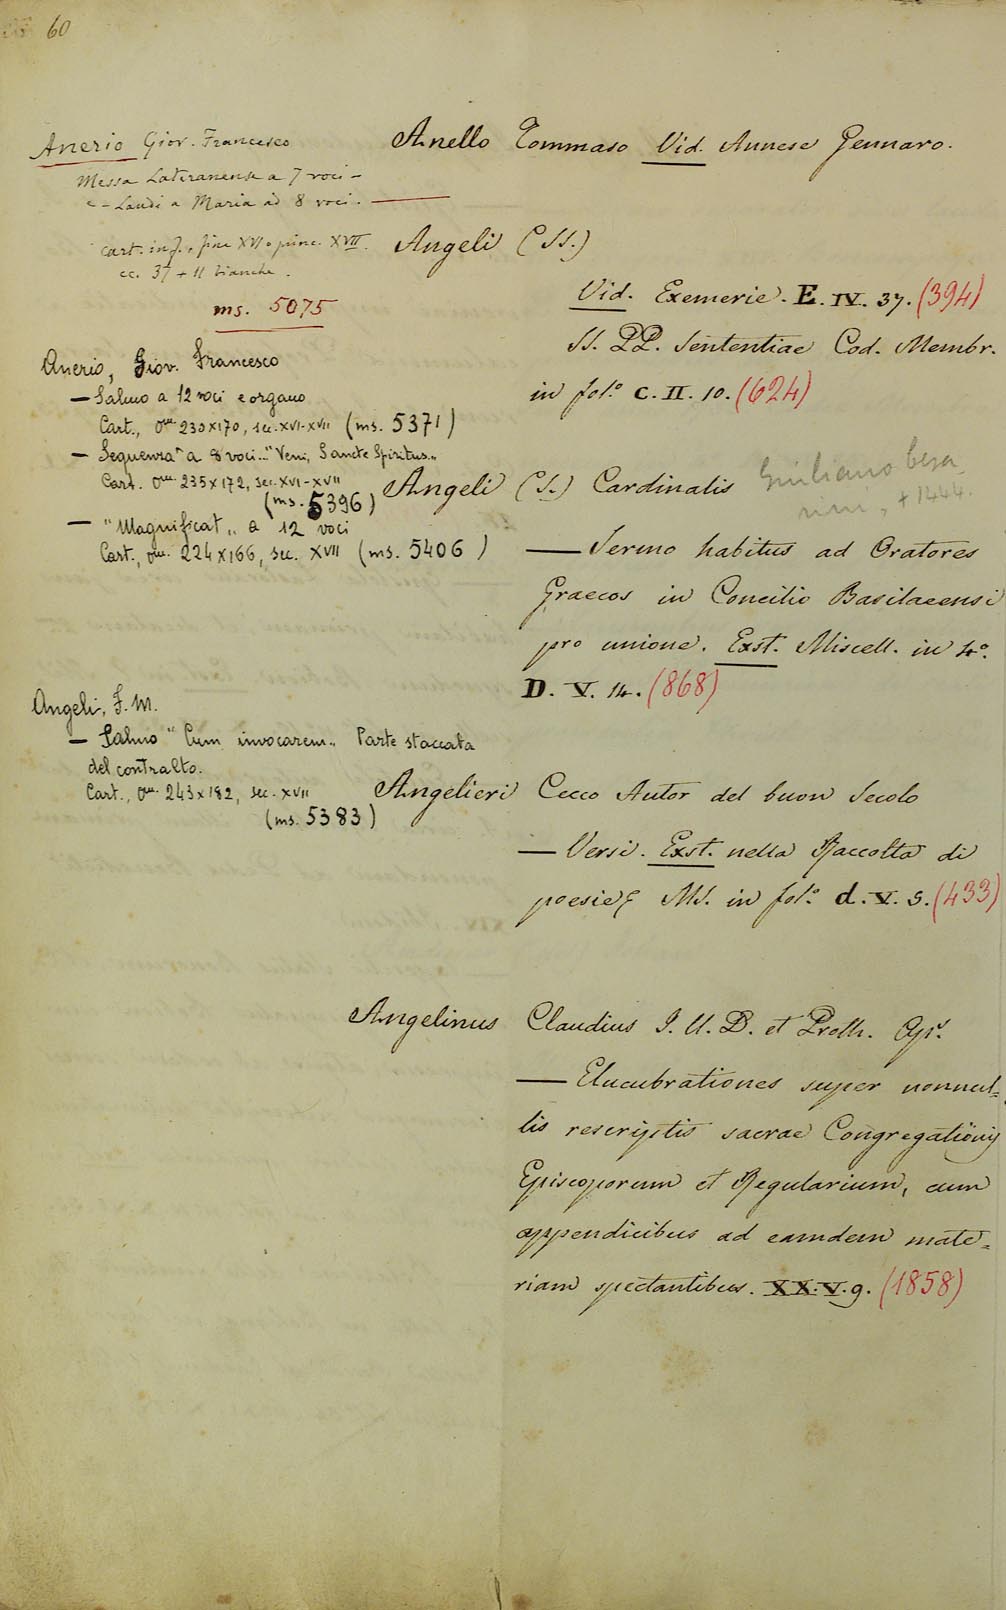 60
Anerio Giov. Francesco
Messa Lateranense a 7 voci -
e - Laudi a Maria ad 8 voci.
cart. in f., fine XVI o princ. XVII.
cc. 37 + 11 bianche.
ms. 5075
Anerio, Giov. Francesco
— Salmo a 12 voci e organo
Cart., 230×170, sec. XVI-XVII (ms. 5371)
— Sequenza a 8 voci.. "Veni, Sancte Spiritus„
Cart. 235×172, sec. XVI-XVII
(ms. 5396)
— "Magnificat„ a 12 voci
Cart., 224×166, sec. XVII (ms. 5406)
Angeli, F. M.
— Salmo "Cum invocarem„ Parte staccata
del contralto.
Cart., 243×182, sec. XVII
(ms. 5383)
Anello Tommaso Vid. Annese Gennaro.
Angeli (SS.)
Vid. Exemerie. E. IV. 37. (394)
SS. PP. Sententiae Cod. Membr.
in fol.º C. II. 10. (624)
Angeli (S.) Cardinalis Giuliano Cesa
rini, + 1444.
— Sermo habitus ad Oratores
Graecos in Concilio Basilaeensi
pro unione. Exst. Miscell. in 4.º
D. V. 14. (868)
Angelieri Cecco Autor del buon Secolo
— Versi. Exst. nella Raccolta di
poesie MS. in fol.º d. V. 5. (433)
Angelinus Claudius J. U. D. et Proth. Ap.
— Elucubrationes super nonnul=
lis rescriptis sacrae Congregationis
Episcoporum et Regularium, cum
appendicibus ad eamdem mate=
riam spectantibus. XX. V. 9. (1858)